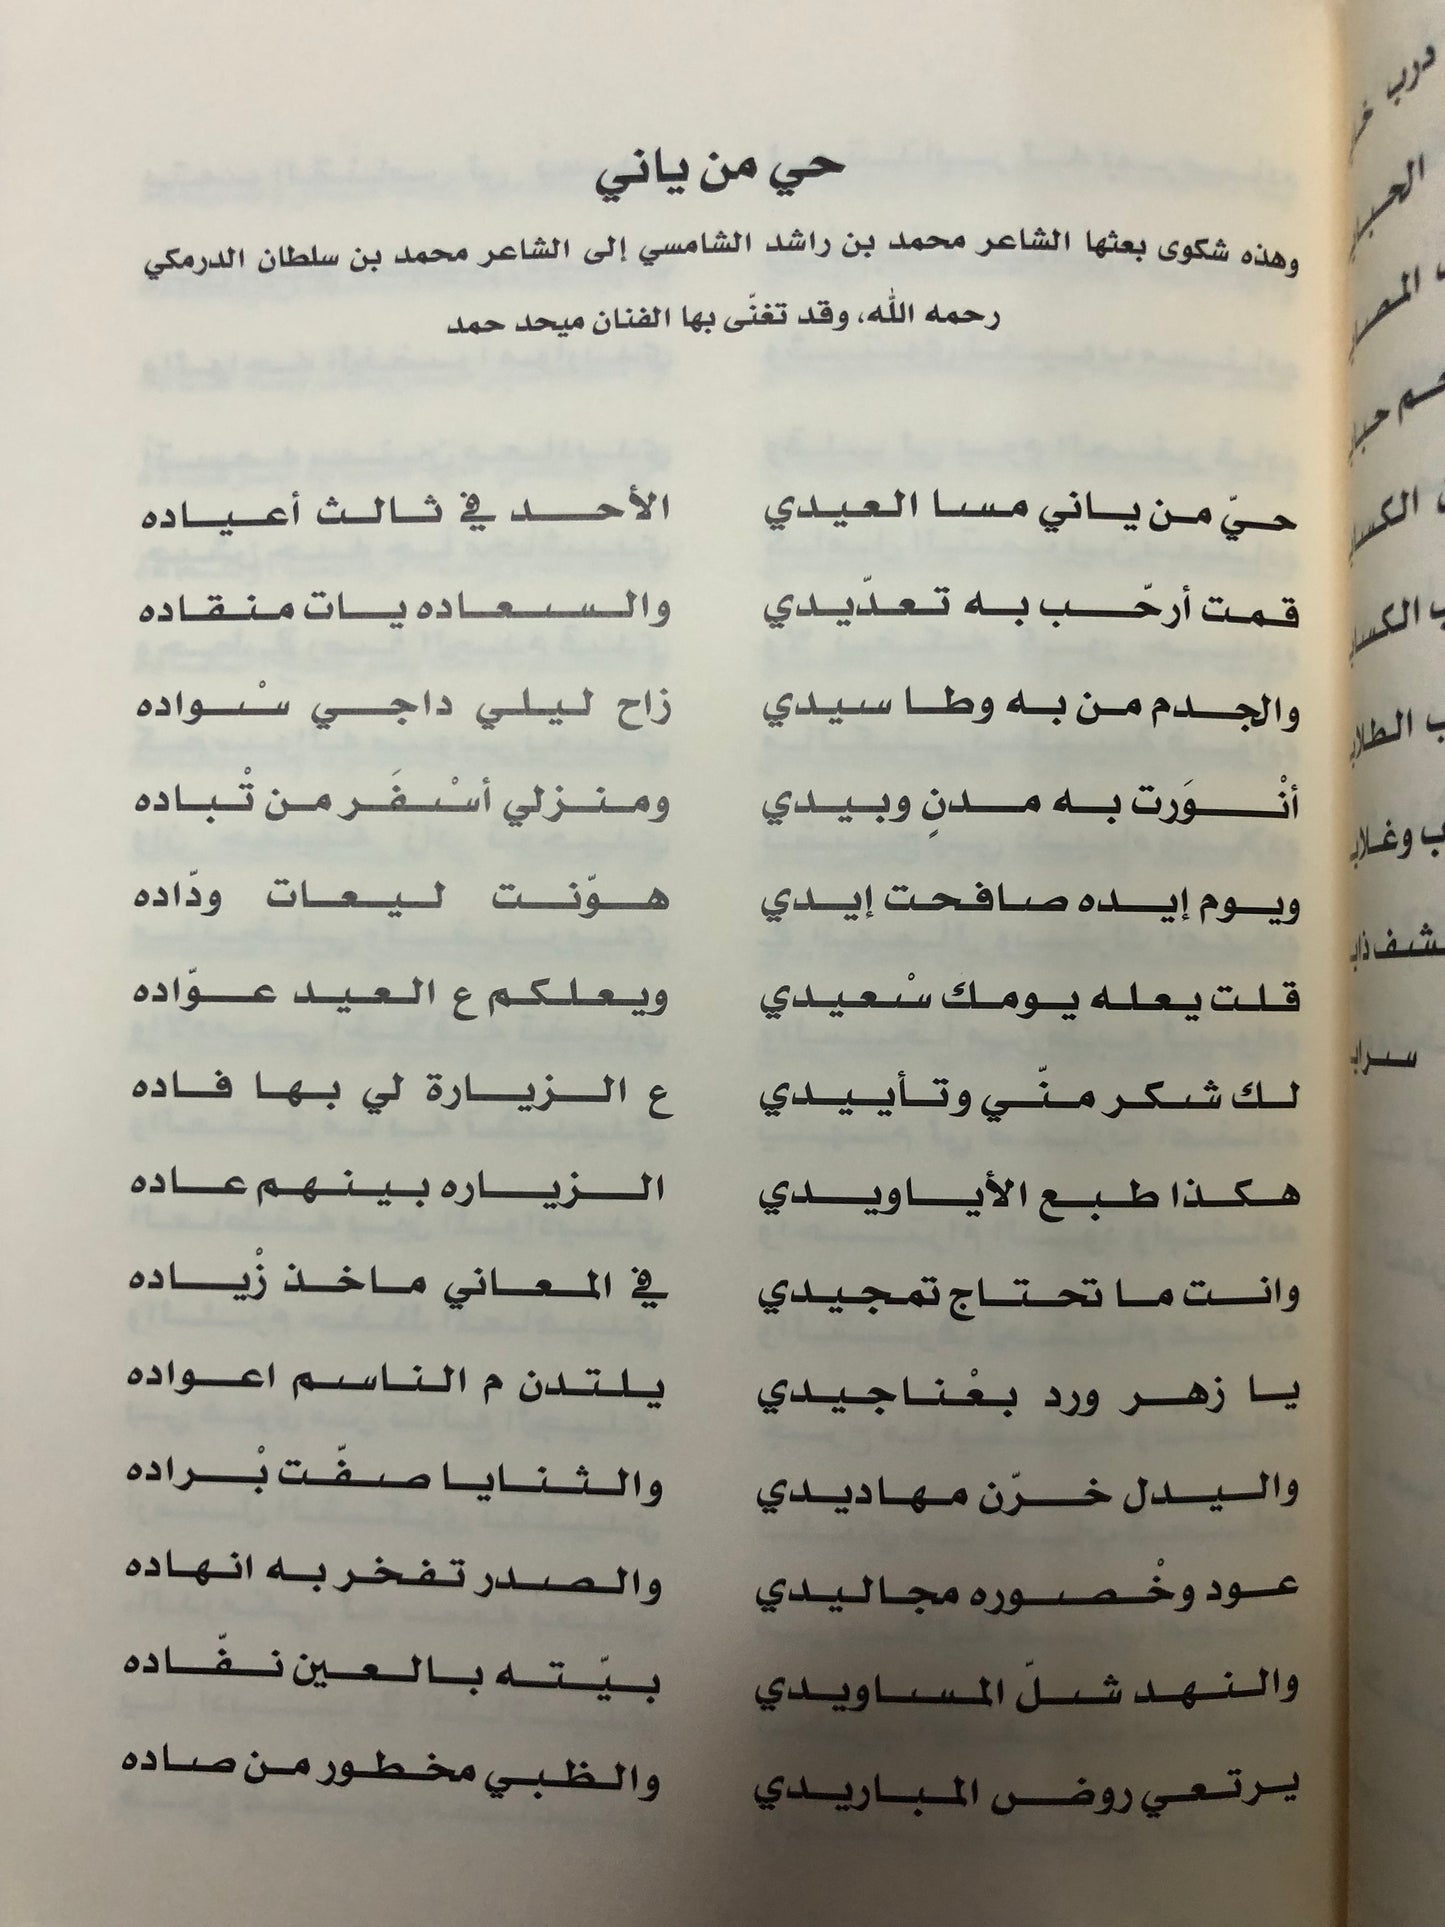 حي من ياني
وهذه شكوى بعثها الشاعر محمد بن راشد الشامسي إلى الشاعر محمد بن سلطان الدرمكي
رحمه الله، وقد تغنّى بها الفنان ميحد حمد
حيّ من ياني مسا العيدي الأحد في ثالث أعياده
قمت أرحّب به تعدّيدي والسعاده يات منقاده
والجدم من به وطا سيدي زاح ليلي داجي سْواده
أنْوَرت به مدنٍ وبيدي ومنزلي أسْفَر من تْباده
ويوم إيده صافحت إيدي هوّنت ليعات ودّاده
قلت يعله يومك سْعيدي ويعلكم ع العيد عوّاده
لك شكر منّي وتأييدي ع الزيارة لي بها فاده
هكذا طبع الأياويدي الزياره بينهم عاده
وانت ما تحتاج تمجيدي في المعاني ماخذ زْياده
يا زهر ورد بعْناجيدي يلتدن م الناسم اعواده
واليدل خرّن مهاديدي والثنايا صفّت بْراده
عود وخْصوره مجاليدي والصدر تفخر به انهاده
والنهد شلّ المساويدي بيّته بالعين نفّاده
يرتعي روض المباريدي والظبي مخطور من صاده
درب
الكساب
الطلاب
سراب